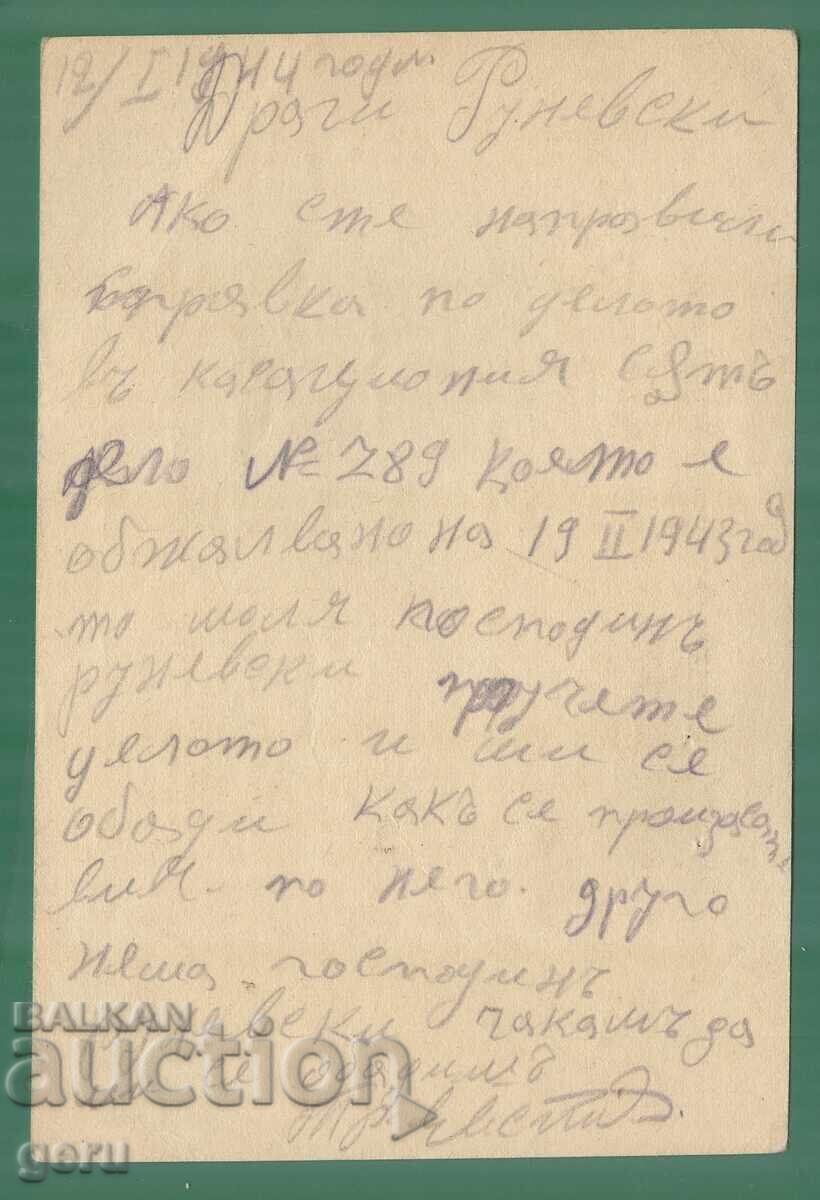 12/I 1944 годи.
Драги Руневски
Ако сте направили
справка по делото
въ касационния сѫтъ
дело № 789 което е
обжалвано на 19 II 1943 год
то моля господинъ
руневски проучете
делото и ми се
обади какъ се
по него. друго
няма господинъ
чакамъ да
ми се обадимъ
BALKAN
auction
geru